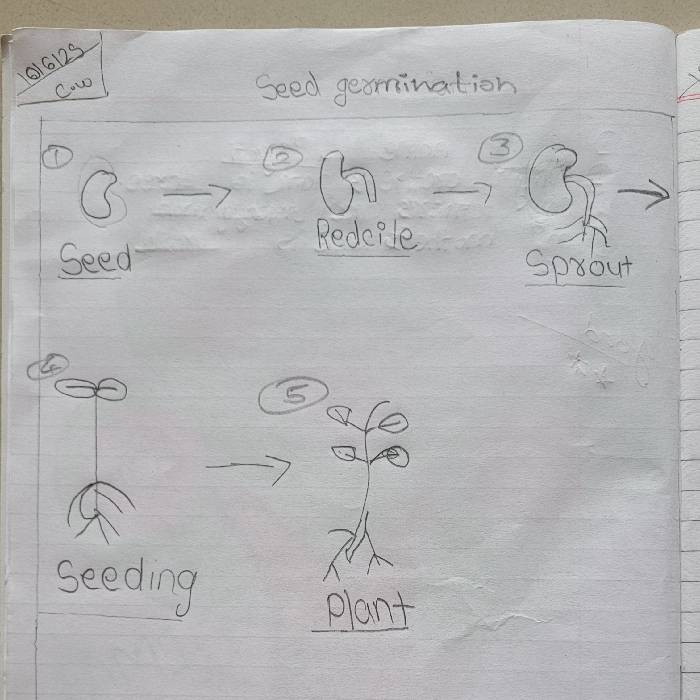 16/6/25
C.W
Seed germination
1
2
3
Seed
Redcile
Sprout
4
5
Seeding
Plant